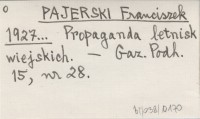 PAJERSKI Franciszek
1927... Propaganda letnisk
wiejskich. — Gaz. Podh.
15, nr 28.